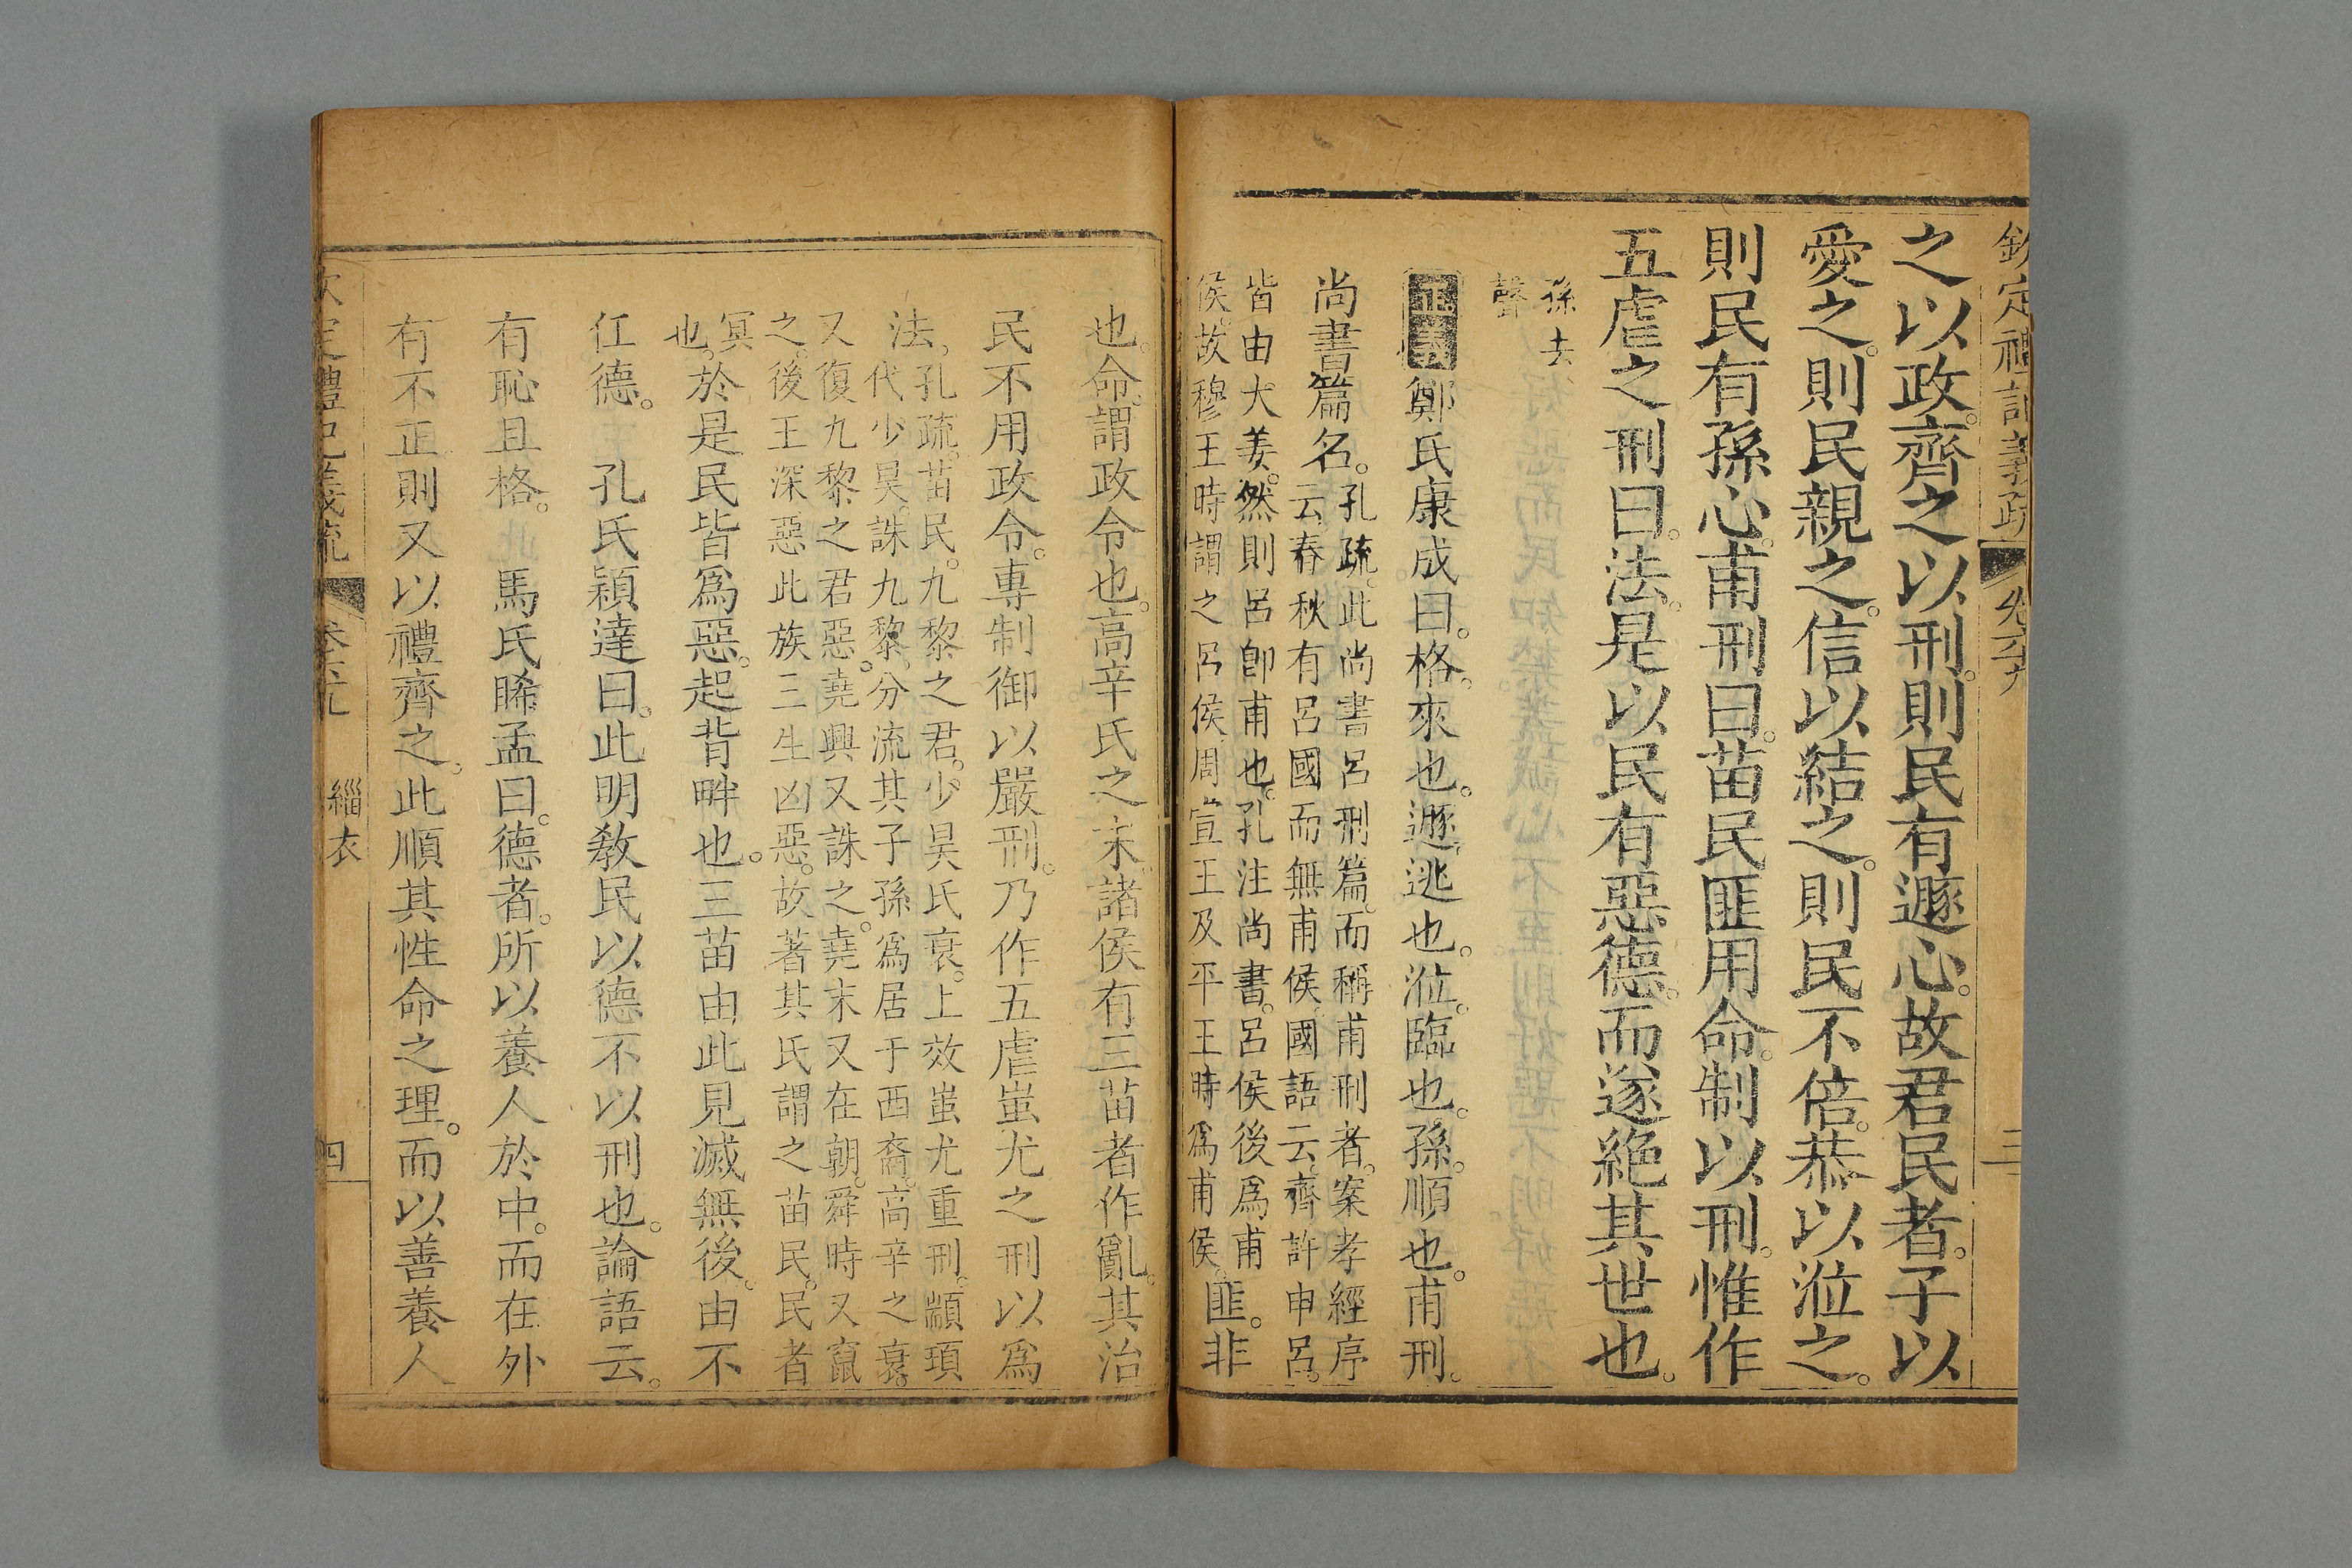 欽定禮記義疏 卷六十九 三
之以政。齊之以刑。則民有遯心。故君民者。子以
愛之。則民親之。信以結之。則民不倍。恭以涖之。
則民有孫心。甫刑曰。苗民匪用命。制以刑。惟作
五虐之刑曰。法。是以民有惡德。而遂絶其世也。
孫去
聲
正義 鄭氏康成曰。格。來也。遯。逃也。涖。臨也。孫。順也。甫刑。
尚書篇名。
孔疏。此尚書呂刑篇。而稱甫刑者。案孝經序
云春秋有呂國而無甫侯。國語云。齊許申呂。
皆由大姜。然則呂卽甫也。孔注尚書。呂侯後爲甫
侯。故穆王時謂之呂侯。周宣王及平王時爲甫侯。
匪。非
也。命。謂政令也。高辛氏之末諸侯有三苗者作亂。其治
民不用政令。專制御以嚴刑。乃作五虐蚩尤之刑以爲
法。
孔疏。苗民。九黎之君。少昊氏衰。上效蚩尤重刑。顓頊
代少昊。誅九黎。分流其子孫爲居于西裔。高辛之衰。
又復九黎之君惡。堯興又誅之。堯末又在朝。舜時又竄
之。後王深惡此族三生凶惡。故著其氏謂之苗民。民者
冥
也。
於是民皆爲惡。起背畔也。三苗由此見滅無後。由不
任德。 孔氏穎達曰。此明教民以德不以刑也。論語云。
有恥且格。 馬氏睎孟曰。德者。所以養人於中。而在外
有不正則又以禮齊之。此順其性命之理。而以善養人
欽定禮記義疏 卷六十九 緇衣 四